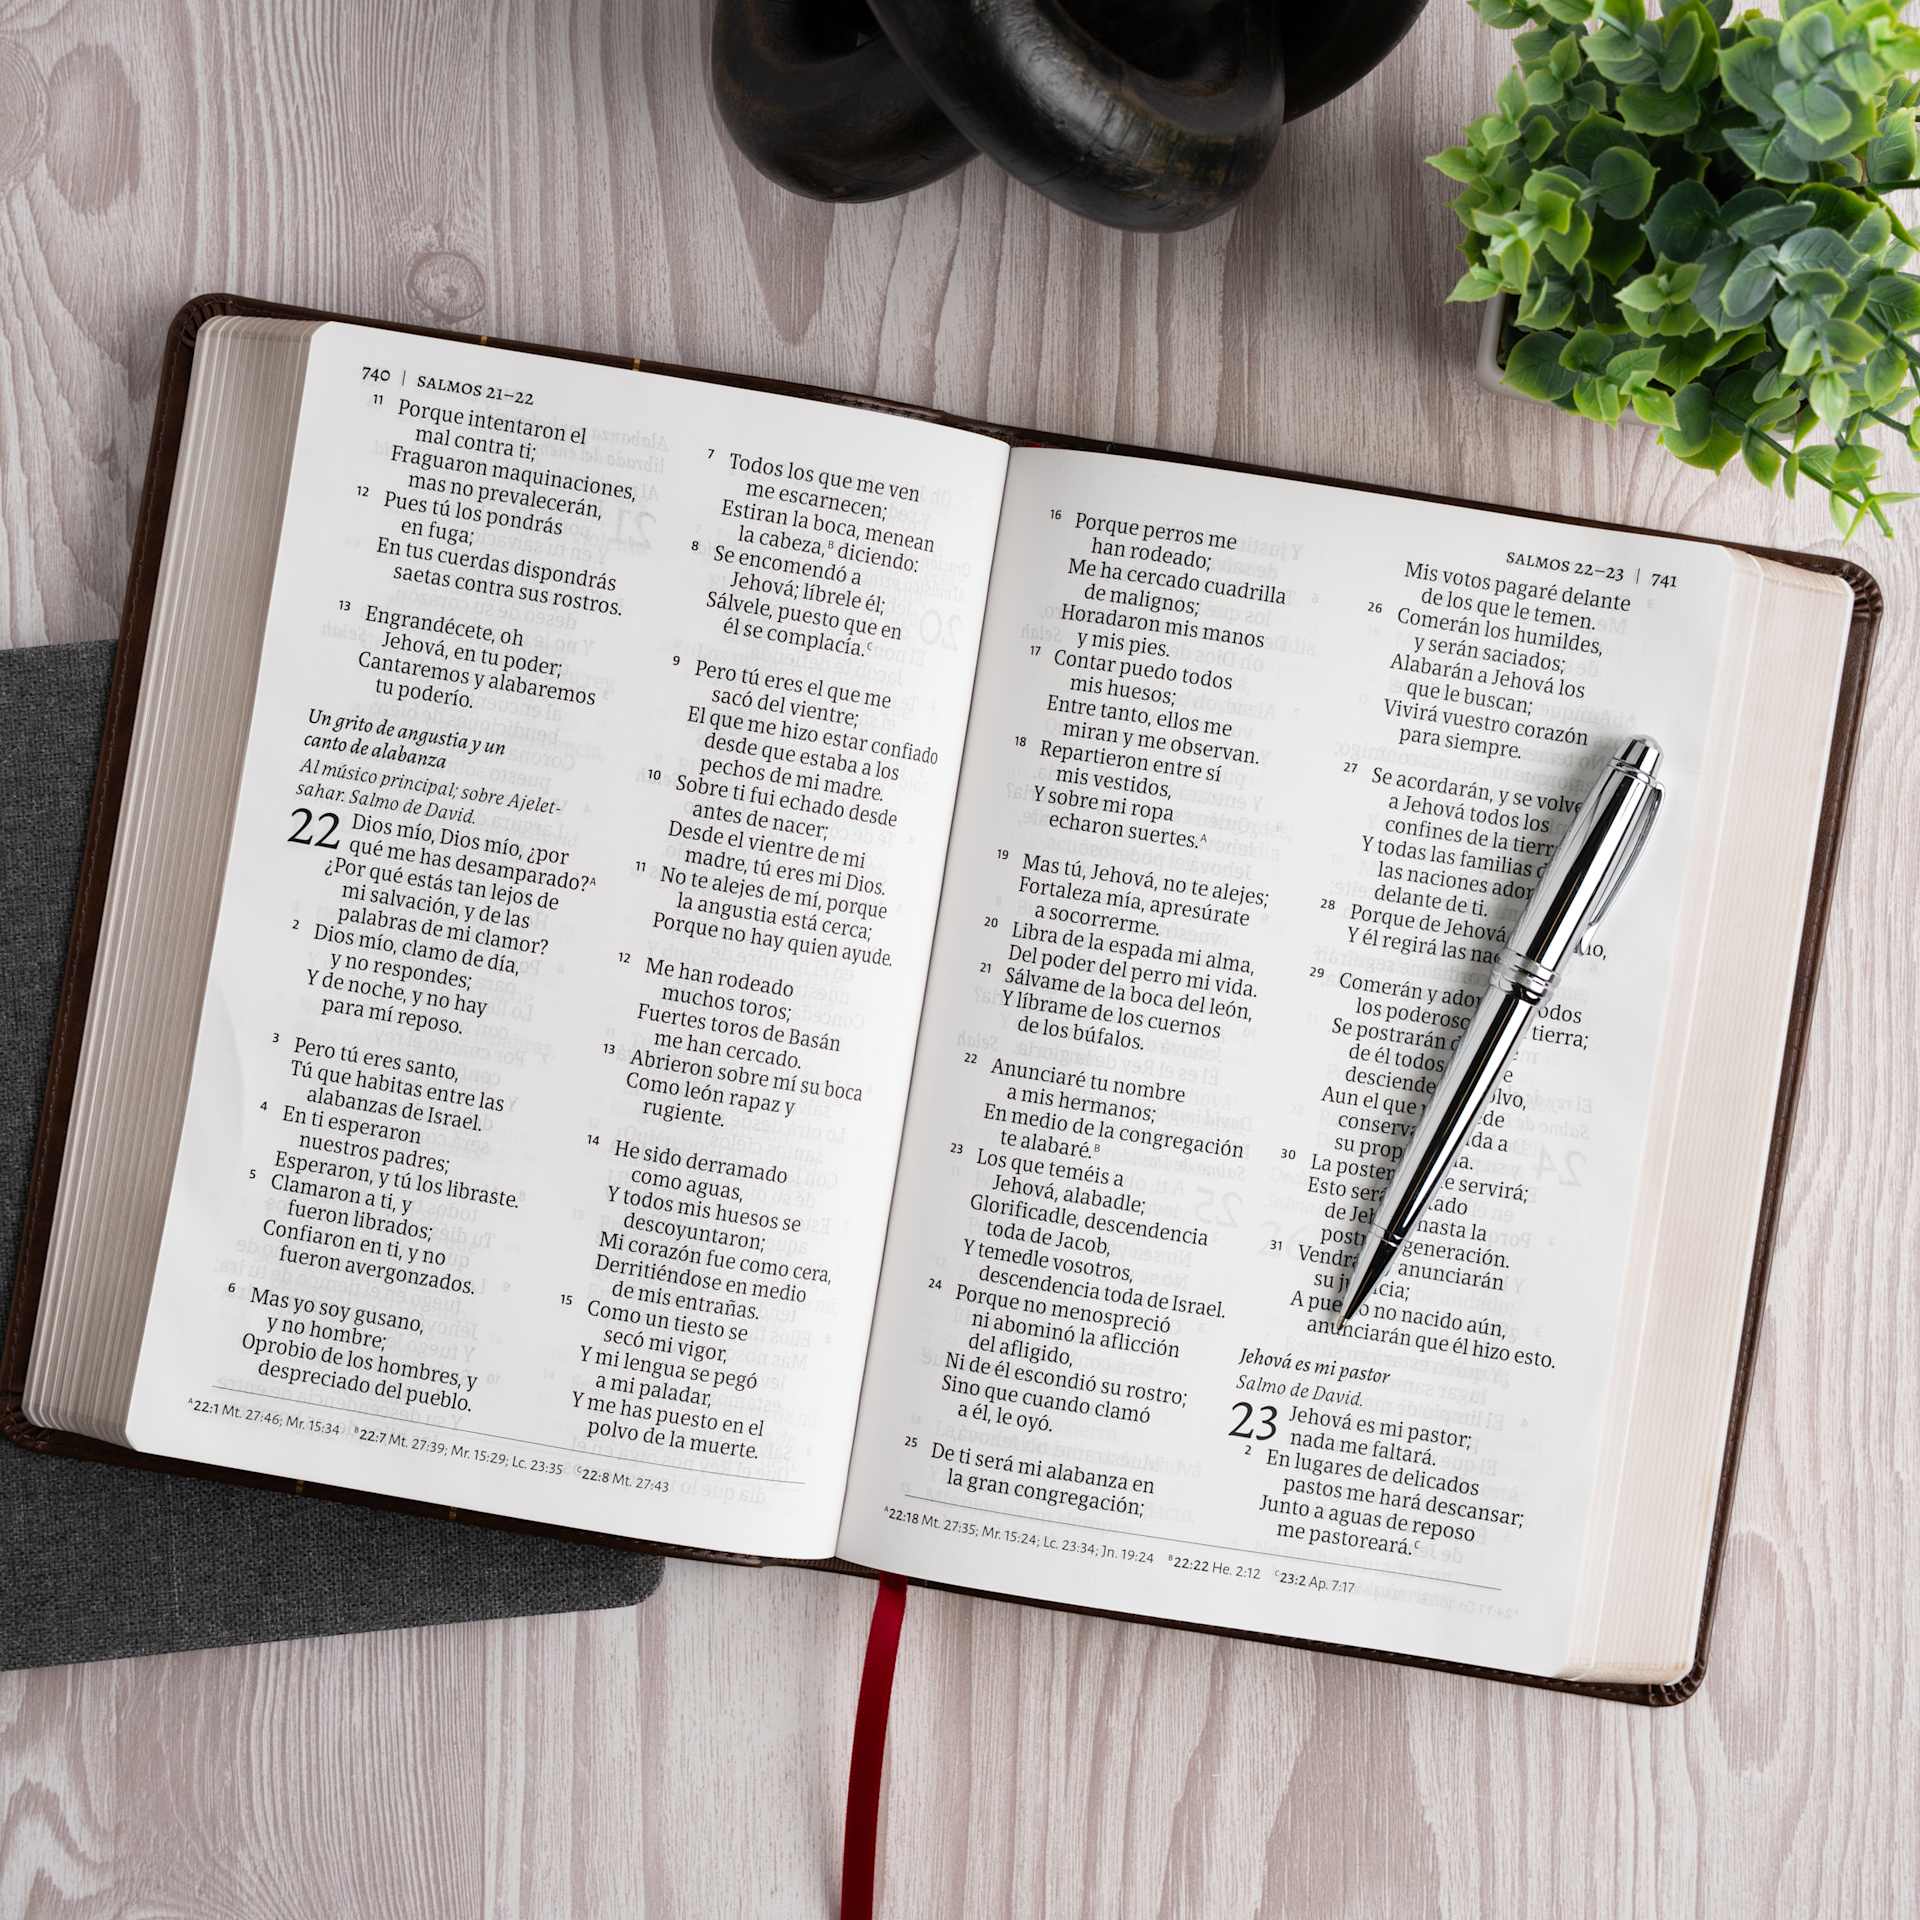 740 | SALMOS 21–22
11 Porque intentaron el
mal contra ti;
Fraguaron maquinaciones,
mas no prevalecerán,
12 Pues tú los pondrás
en fuga;
En tus cuerdas dispondrás
saetas contra sus rostros.
13 Engrandécete, oh
Jehová, en tu poder;
Cantaremos y alabaremos
tu poderío.
Un grito de angustia y un
canto de alabanza
Al músico principal; sobre Ajelet-
sahar. Salmo de David.
22 Dios mío, Dios mío, ¿por
qué me has desamparado?A
¿Por qué estás tan lejos de
mi salvación, y de las
palabras de mi clamor?
2 Dios mío, clamo de día,
y no respondes;
Y de noche, y no hay
para mí reposo.
3 Pero tú eres santo,
Tú que habitas entre las
alabanzas de Israel.
4 En ti esperaron
nuestros padres;
Esperaron, y tú los libraste.
5 Clamaron a ti, y
fueron librados;
Confiaron en ti, y no
fueron avergonzados.
6 Mas yo soy gusano,
y no hombre;
Oprobio de los hombres, y
despreciado del pueblo.
7 Todos los que me ven
me escarnecen;
Estiran la boca, menean
la cabeza,B diciendo:
8 Se encomendó a
Jehová; líbrele él;
Sálvele, puesto que en
él se complacía.C
9 Pero tú eres el que me
sacó del vientre;
El que me hizo estar confiado
desde que estaba a los
pechos de mi madre.
10 Sobre ti fui echado desde
antes de nacer;
Desde el vientre de mi
madre, tú eres mi Dios.
11 No te alejes de mí, porque
la angustia está cerca;
Porque no hay quien ayude.
12 Me han rodeado
muchos toros;
Fuertes toros de Basán
me han cercado.
13 Abrieron sobre mí su boca
Como león rapaz y
rugiente.
14 He sido derramado
como aguas,
Y todos mis huesos se
descoyuntaron;
Mi corazón fue como cera,
Derritiéndose en medio
de mis entrañas.
15 Como un tiesto se
secó mi vigor,
Y mi lengua se pegó
a mi paladar,
Y me has puesto en el
polvo de la muerte.
A22:1 Mt. 27:46; Mr. 15:34 B22:7 Mt. 27:39; Mr. 15:29; Lc. 23:35 C22:8 Mt. 27:43
SALMOS 22–23 | 741
16 Porque perros me
han rodeado;
Me ha cercado cuadrilla
de malignos;
Horadaron mis manos
y mis pies.
17 Contar puedo todos
mis huesos;
Entre tanto, ellos me
miran y me observan.
18 Repartieron entre sí
mis vestidos,
Y sobre mi ropa
echaron suertes.A
19 Mas tú, Jehová, no te alejes;
Fortaleza mía, apresúrate
a socorrerme.
20 Libra de la espada mi alma,
Del poder del perro mi vida.
21 Sálvame de la boca del león,
Y líbrame de los cuernos
de los búfalos.
22 Anunciaré tu nombre
a mis hermanos;
En medio de la congregación
te alabaré.B
23 Los que teméis a
Jehová, alabadle;
Glorificadle, descendencia
toda de Jacob,
Y temedle vosotros,
descendencia toda de Israel.
24 Porque no menospreció
ni abominó la aflicción
del afligido,
Ni de él escondió su rostro;
Sino que cuando clamó
a él, le oyó.
25 De ti será mi alabanza en
la gran congregación;
Mis votos pagaré delante
de los que le temen.
26 Comerán los humildes,
y serán saciados;
Alabarán a Jehová los
que le buscan;
Vivirá vuestro corazón
para siempre.
27 Se acordarán, y se
a Jehová todos los
confines de la
Y todas las familias
las naciones
delante de ti.
28 Porque de Jehová
Y él regirá las
29 Comerán y
los tierra;
Se postrarán
de él todos
Aun el que
su
30 La servirá;
Esto
de hasta la
generación.
31 anunciarán
su
A no nacido aún,
anunciarán que él hizo esto.
Jehová es mi pastor
Salmo de David.
23 Jehová es mi pastor;
nada me faltará.
2 En lugares de delicados
pastos me hará descansar;
Junto a aguas de reposo
me pastoreará.C
A22:18 Mt. 27:35; Mr. 15:24; Lc. 23:34; Jn. 19:24 B22:22 He. 2:12 C23:2 Ap. 7:17